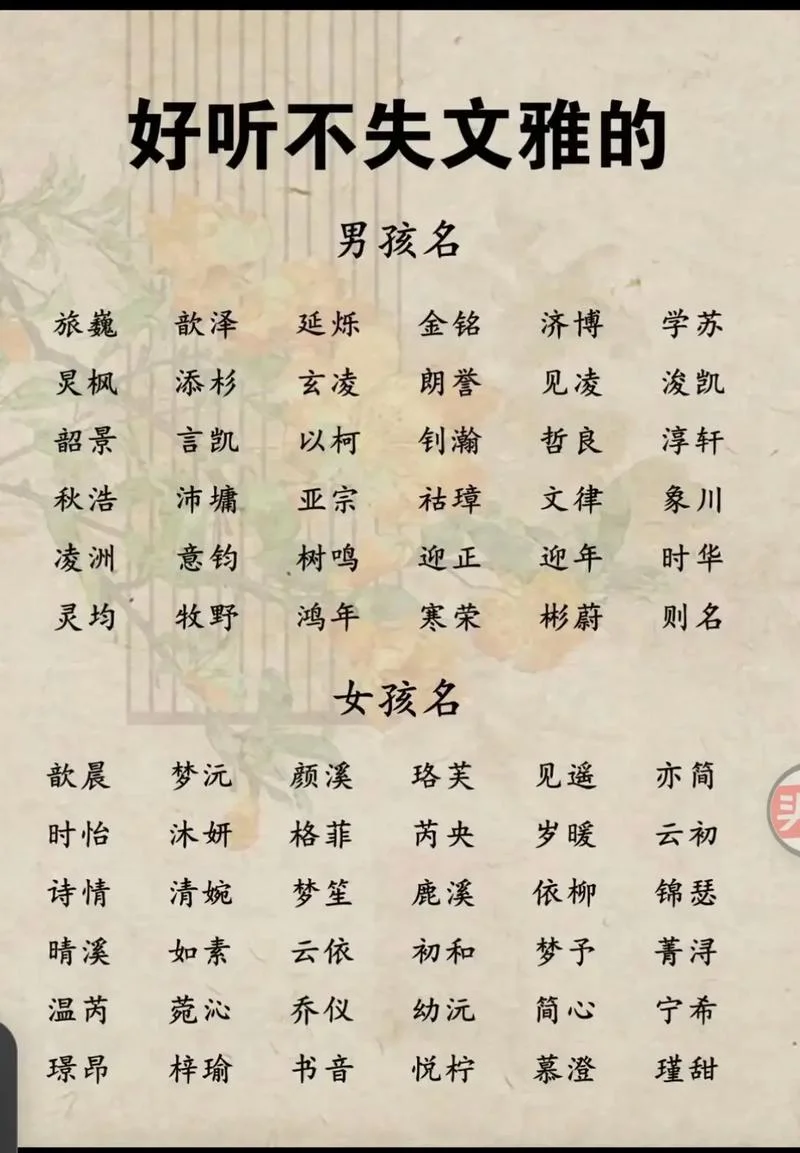 好听不失文雅的
男孩名
旅巍 歆泽 延烁 金铭 济博 学苏
炅枫 添杉 玄凌 朗誉 见凌 浚凯
韶景 言凯 以柯 钊瀚 哲良 淳轩
秋浩 沛墉 亚宗 祜璋 文律 象川
凌洲 意钧 树鸣 迎正 迎年 时华
灵均 牧野 鸿年 寒荣 彬蔚 则名
女孩名
歆晨 梦沅 颜溪 珞芙 见遥 亦简
时怡 沐妍 格菲 芮央 岁暖 云初
诗情 清婉 梦笙 鹿溪 依柳 锦瑟
晴溪 如素 云依 初和 梦予 菁浔
温芮 菀沁 乔仪 幼沅 简心 宁希
璟昂 梓瑜 书音 悦柠 慕澄 瑾甜
头